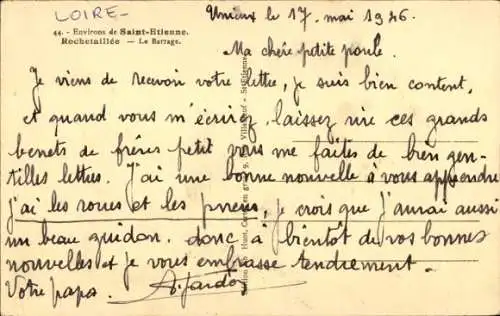 LOIRE-
Unieux le 17 mai 1926.
44. - Environs de Saint-Etienne.
Rochetaillée - Le Barrage.
Ma chère petite poule.
Je viens de recevoir votre lettre, je suis bien content,
et quand vous m'écrirez, laissez rire ces grands
benets de frères petit vous me faites de bien gen-
tilles lettres. J'ai une bonne nouvelle à vous apprendre
j'ai les roues et les pneus, je crois que j'aurai aussi
un beau guidon. donc à bientôt de vos bonnes
nouvelles et je vous embrasse tendrement.
Votre papa.